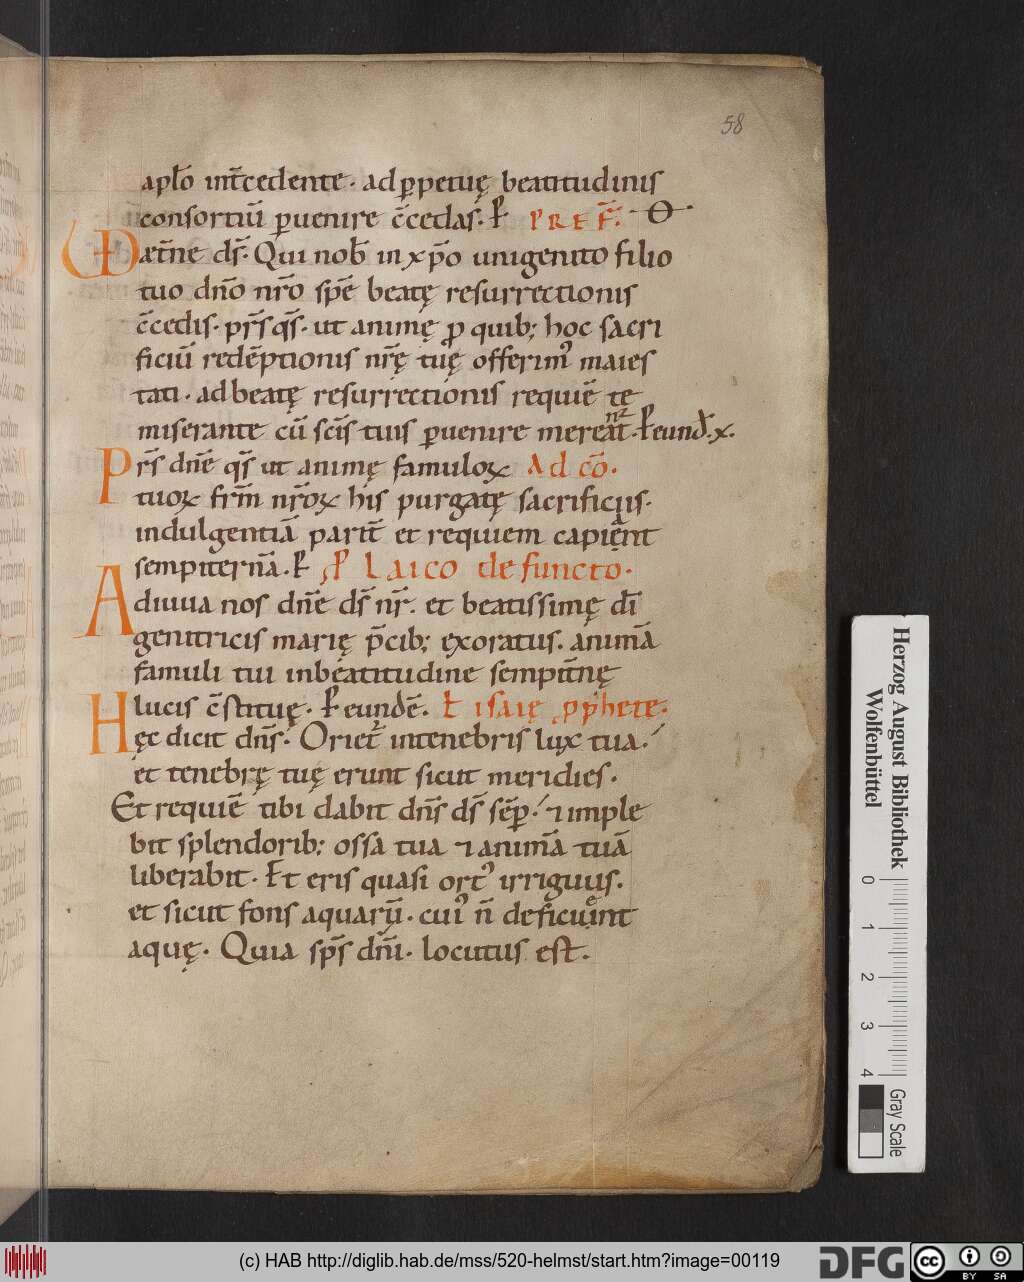 58
apło int̄cedente · ad ꝑpetuę beatitudinis
consortiū ꝑuenire c̄cedas · P̄ PREF̄.
VD æt̄ne ds̄ · Qui nob̄ in xp̄o unigenito filio
tuo dn̄o nr̄o spē beatę resurrectionis
c̄cedis · pr̄s qs̄ · ut animę ꝓ quib; hoc sacri
ficiū redēptionis nr̄ę tuę offerimꝰ maies
tati · ad beatę resurrectionis requiē te
miserante cū scīs tuis ꝑuenire mereant̄ · P̄ eund̄ · x.
Pr̄s dn̄e qs̄ ut animę famuloꝝ Ad cō.
tuoꝝ fr̄m nr̄oꝝ his purgatę sacrificiis.
indulgentiā parit̄ et requiem capiant
sempiternā · P̄ P̄ Laico defuncto.
Adiuua nos dn̄e ds̄ nr̄. et beatissimę dī
genitricis marię p̄cib; exoratus. animā
famuli tui in beatitudine sempit̄nę
lucis c̄stituę · P̄ eundē. Ł isaię ꝓphete.
Hęc dicit dn̄s · Oriet̄ in tenebris lux tua.
et tenebrę tuę erunt sicut meridies.
Et requiē tibi dabit dn̄s ds̄ sēꝑ. ⁊ imple
bit splendorib; ossa tua ⁊ animā tuā
liberabit · Et eris quasi ortꝰ irriguus.
et sicut fons aquarū · cuiꝰ n̄ deficient
aquę · Quia sps̄ dn̄i · locutus est.
Herzog August Bibliothek
Wolfenbüttel
0 1 2 3 4
Gray Scale
(c) HAB http://diglib.hab.de/mss/520-helmst/start.htm?image=00119
DFG
cc BY SA